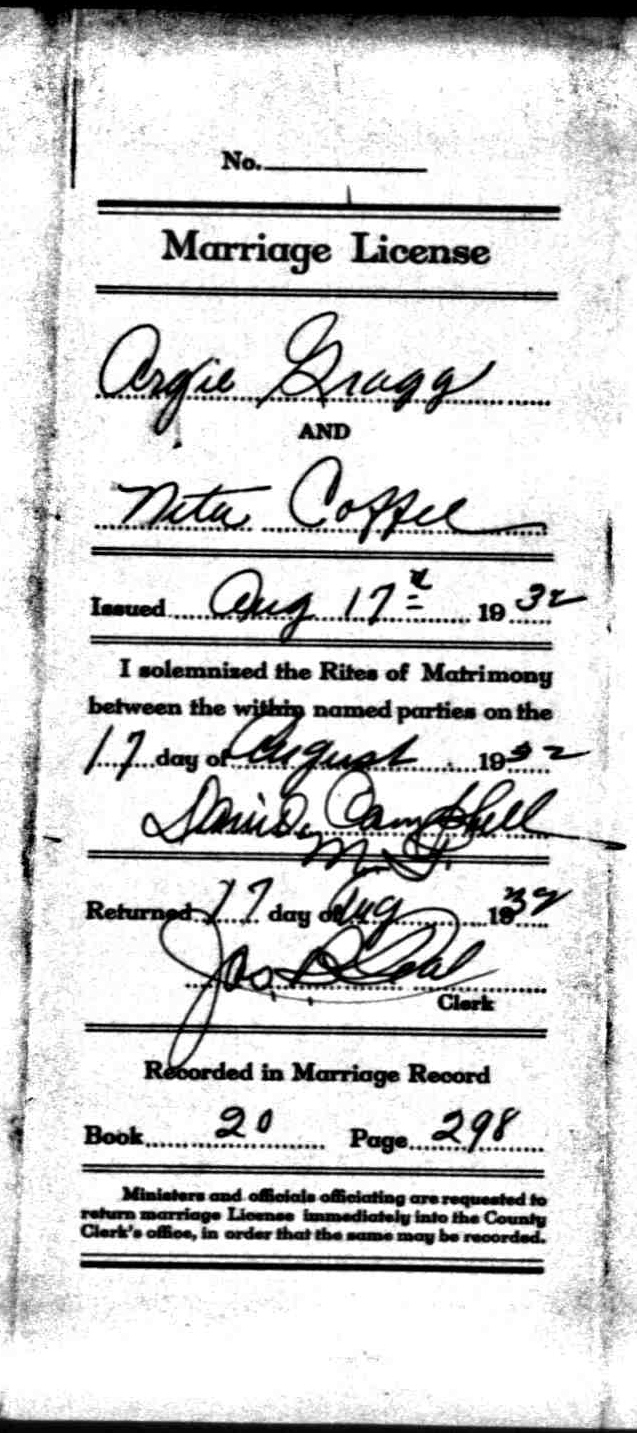 No.
Marriage License
Argie Gragg
AND
Neta Coffee
Issued Aug 17 1932
I solemnized the Rites of Matrimony
between the within named parties on the
17 day of August 1932
Campbell
Returned 17 day of Aug 1932
Jos
Clerk
Recorded in Marriage Record
Book 20 Page 298
Ministers and officials officiating are requested to
return marriage License immediately into the County
Clerk's office, in order that the same may be recorded.